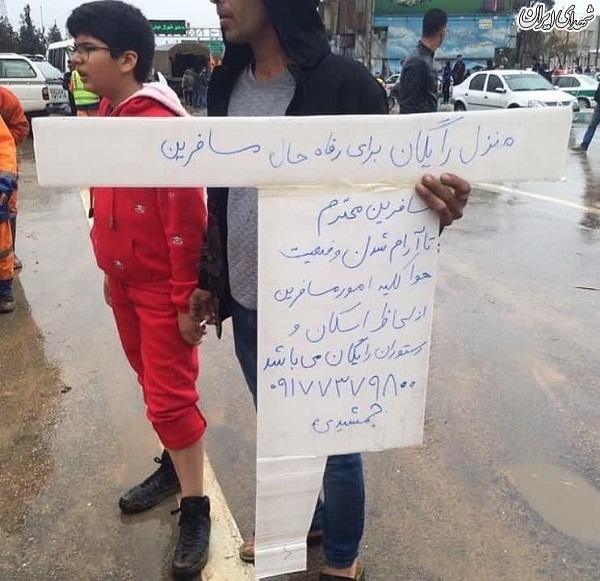 شهدای ایران
منزل رایگان برای رفاه حال مسافرین
مسافرین محترم
تا آرام شدن وضعیت
هوا کلیه امور مسافرین
از لحاظ اسکان و
رستوران رایگان می باشد
۰۹۱۷۷۳۷۹۸۰۰
جمشیدی